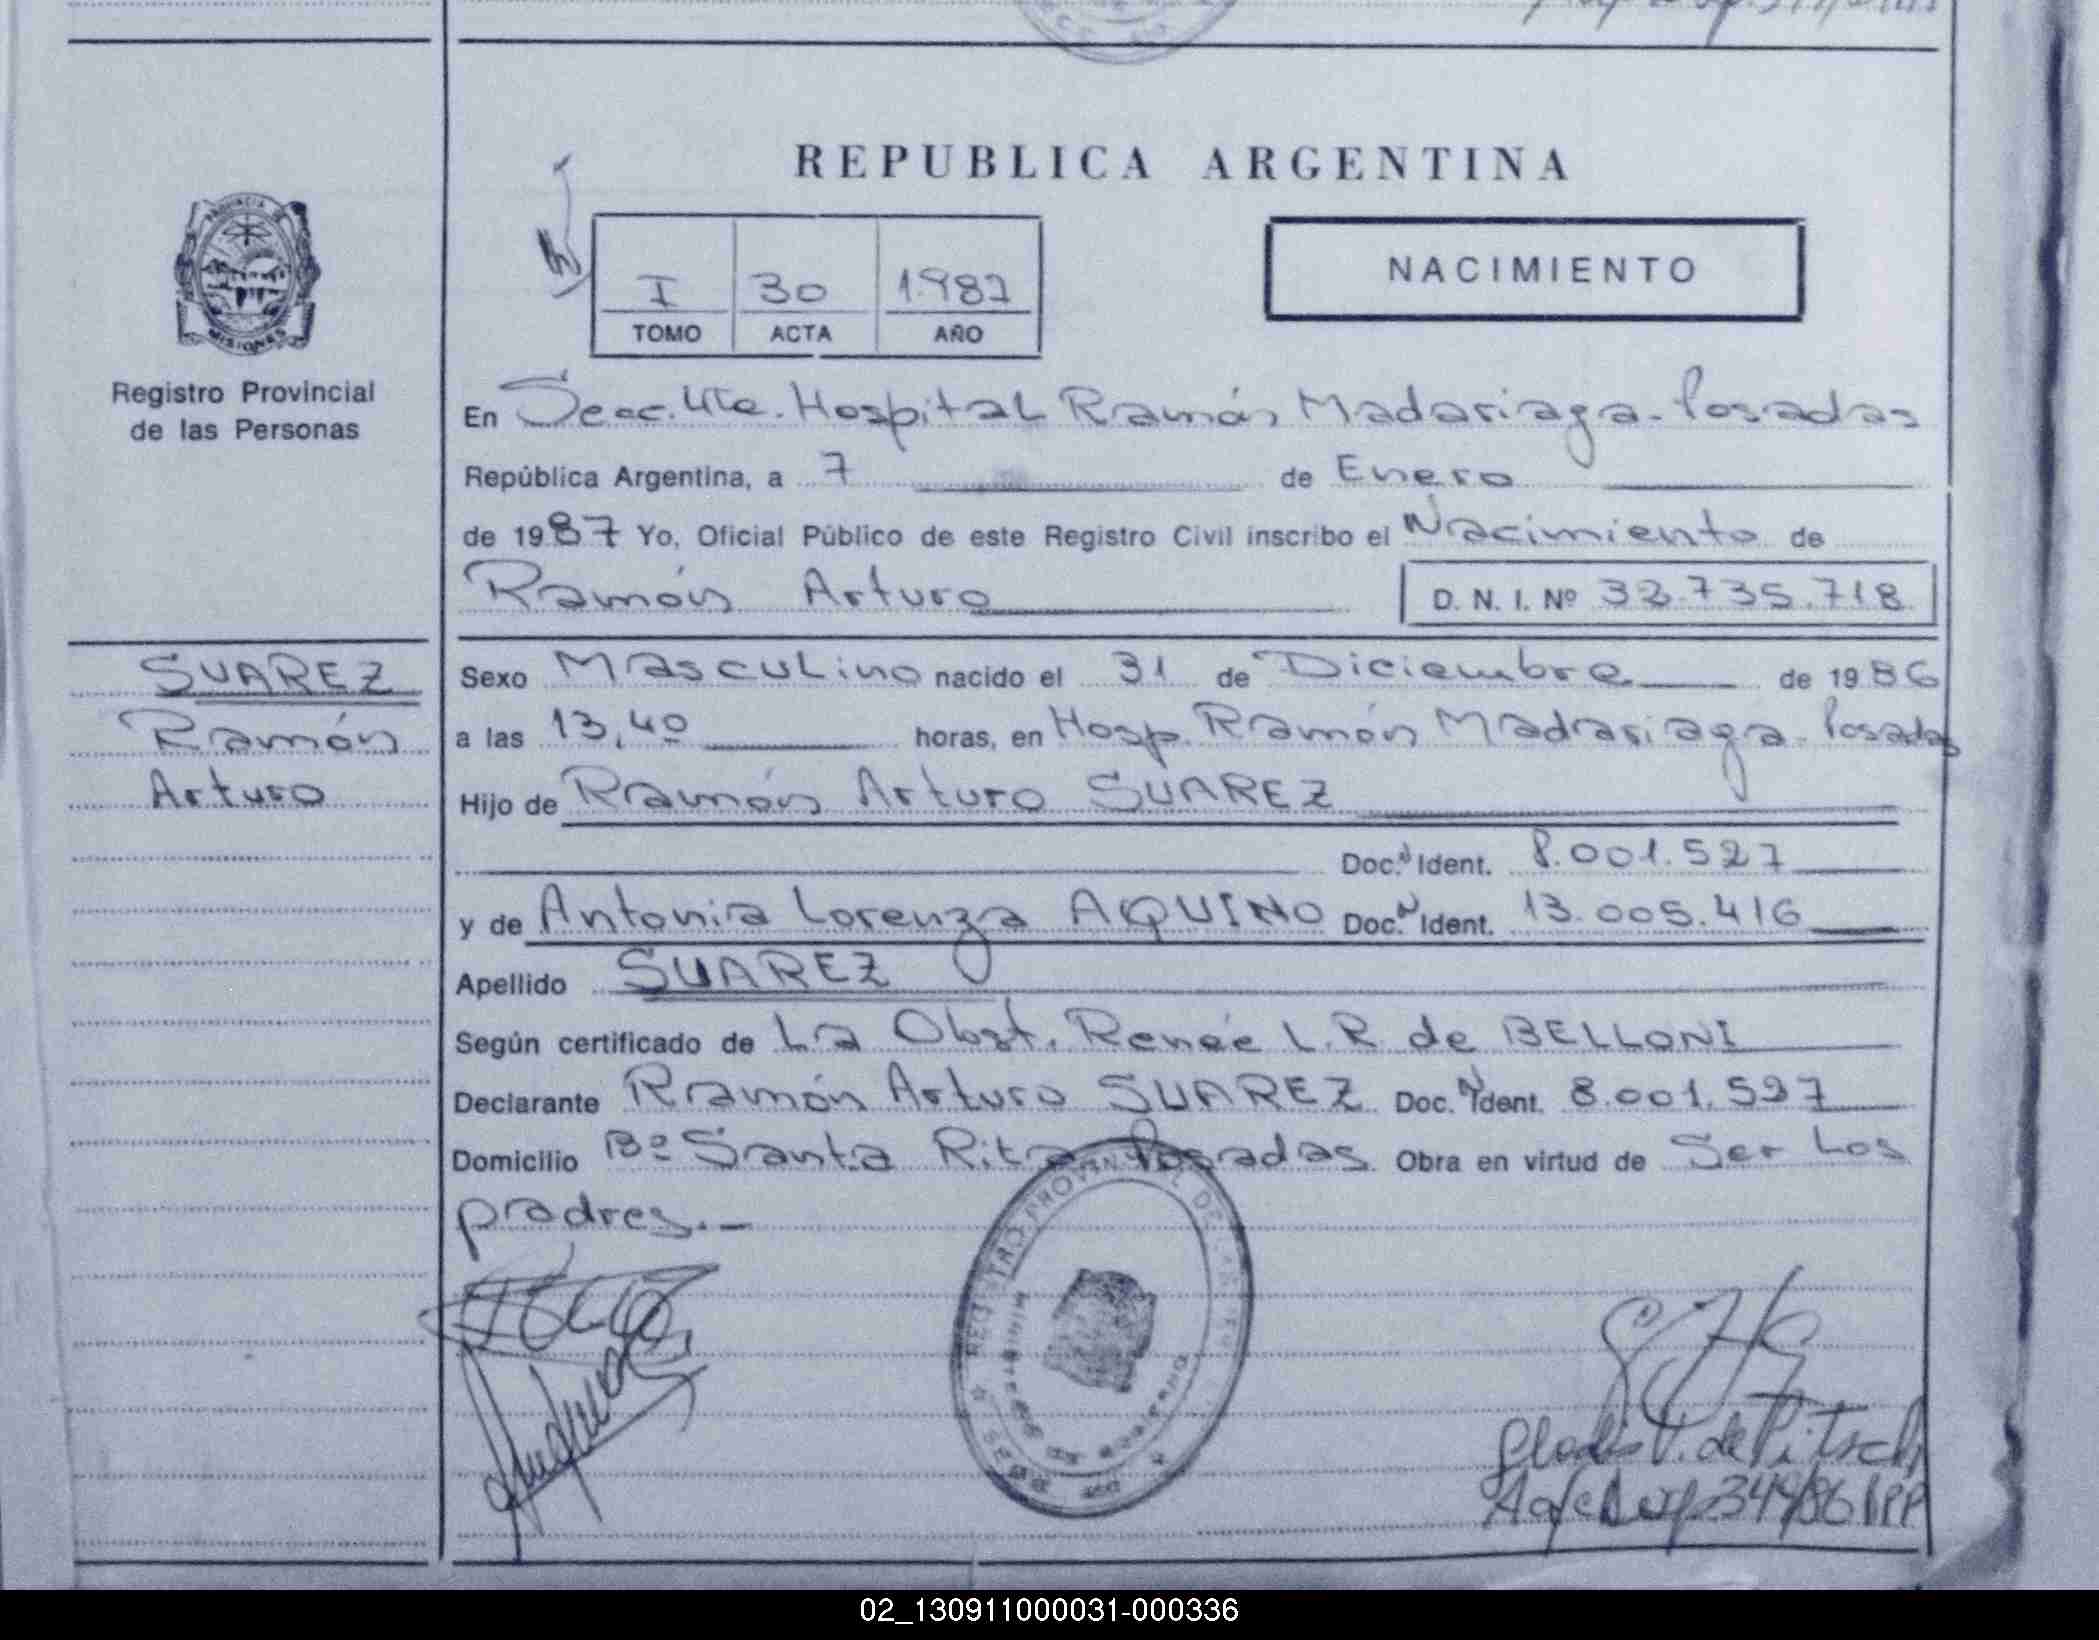 REPUBLICA ARGENTINA
PROVINCIA DE
MISIONES
Registro Provincial
de las Personas
I 30 1.987
TOMO ACTA AÑO
NACIMIENTO
En Secc. 4ta. Hospital Ramón Madariaga - Posadas
República Argentina, a 7 de Enero
de 1987 Yo, Oficial Público de este Registro Civil inscribo el Nacimiento de
Ramón Arturo D. N. I. Nº 32.735.718
SUAREZ
Ramón
Arturo
Sexo Masculino nacido el 31 de Diciembre de 1986
a las 13,40 horas, en Hosp. Ramón Madariaga - Posadas
Hijo de Ramón Arturo SUAREZ
Doc. N Ident. 8.001.527
y de Antonia Lorenza AQUINO Doc. N Ident. 13.005.416
Apellido SUAREZ
Según certificado de La Obst. Renée L.R. de BELLONI
Declarante Ramón Arturo SUAREZ Doc. N Ident. 8.001.527
Domicilio Bº Santa Rita Posadas Obra en virtud de Ser los
padres.-
REGISTRO PROVINCIAL DE LAS
Gladis V. de Pitsch
344/86
02_130911000031-000336